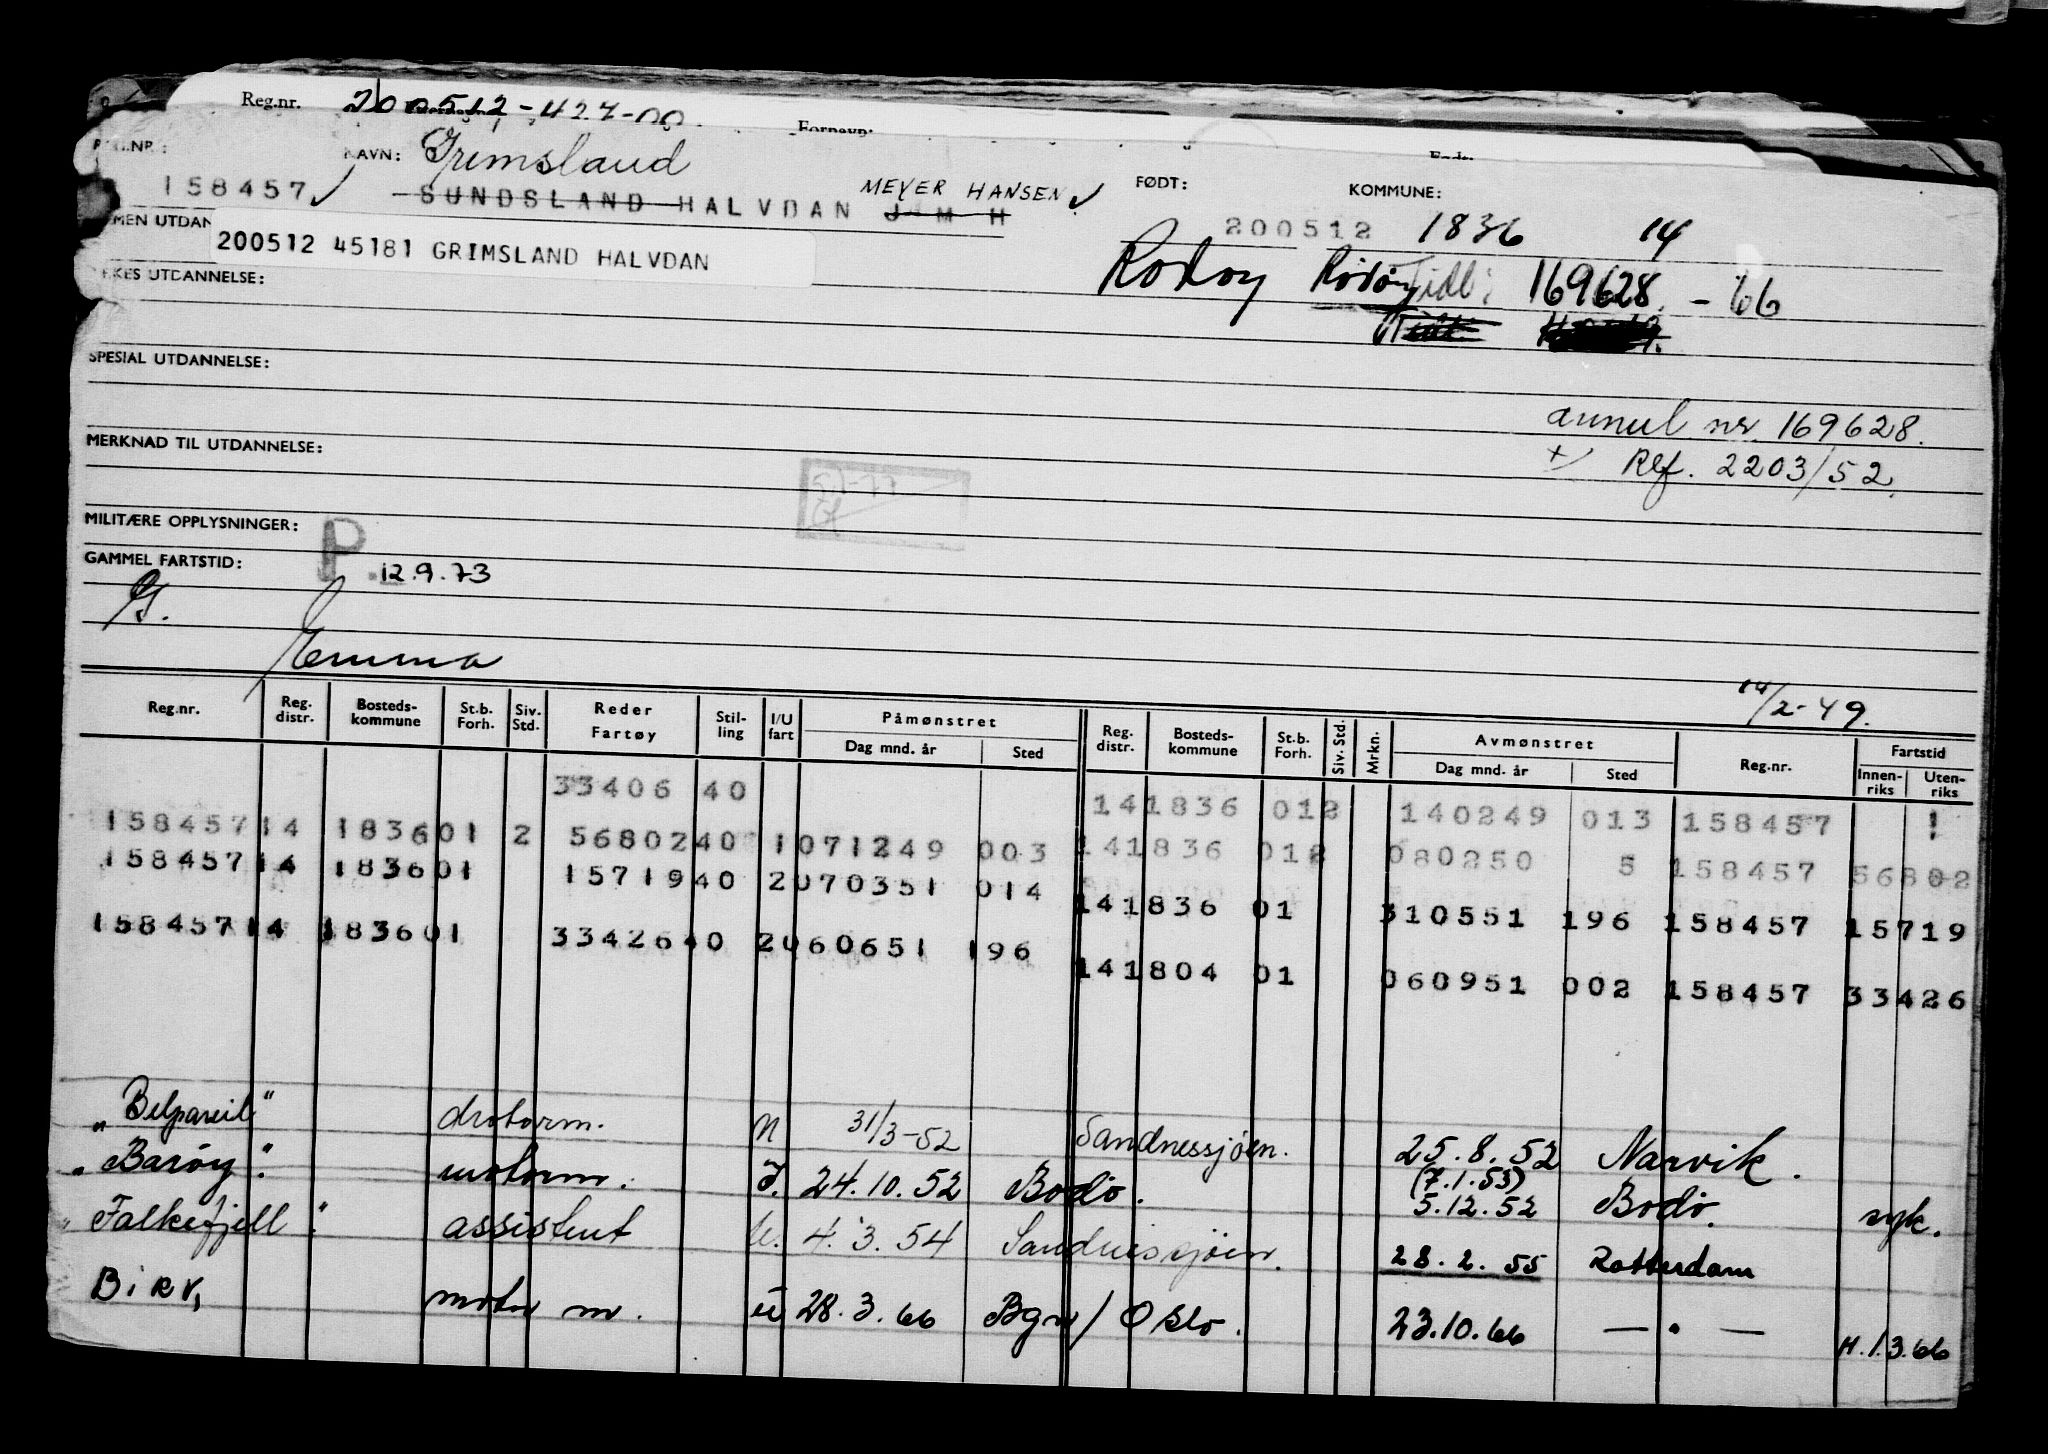 Reg.nr. 200512-427-00
Fornavn:
NAVN: Grimsland
158457 SUNDSLAND HALVDAN J M H MEYER HANSEN FØDT: KOMMUNE:
200512 1836 14
200512 45181 GRIMSLAND HALVDAN
Rødøy Rødøy Tidl: 169628 - 66
UTDANNELSE:
SPESIAL UTDANNELSE:
annul nr 169628.
MERKNAD TIL UTDANNELSE:
+ Ref. 2203/52.
MILITÆRE OPPLYSNINGER:
GAMMEL FARTSTID: P. 12.9.73
G.
Emma
14/2-49.
Reg.nr. Reg. distr. Bosteds-kommune St.b. Forh. Siv. Std. Reder Fartøy Stil-ling I/U fart Påmønstret Dag mnd. år Sted Reg. distr. Bosteds-kommune St.b. Forh. Siv. Std. Mrkn. Avmønstret Dag mnd. år Sted Reg.nr. Fartstid Innen-riks Uten-riks
33406 40 141836 012 140249 013 158457
158457 14 183601 2 56802 40 1 071249 003 141836 012 080250 5 158457 56802
158457 14 183601 15719 40 2 070351 014 141836 01 310551 196 158457 15719
158457 14 183601 33426 40 2 060651 196 141804 01 060951 002 158457 33426
"Belpareil" motorm. U 31/3-52 Sandnessjøen. 25.8.52 Narvik.
"Barøy". motorm. I. 24.10.52 Bodø. (7.1.53) 5.12.52 Bodø. syk.
"Falkefjell". assistent U. 4.3.54 Sandnessjøen. 28.2.55 Rotterdam
Birk, motor m. U 28.3.66 Bgn/Oslo. 23.10.66 — " — H.1.3.66